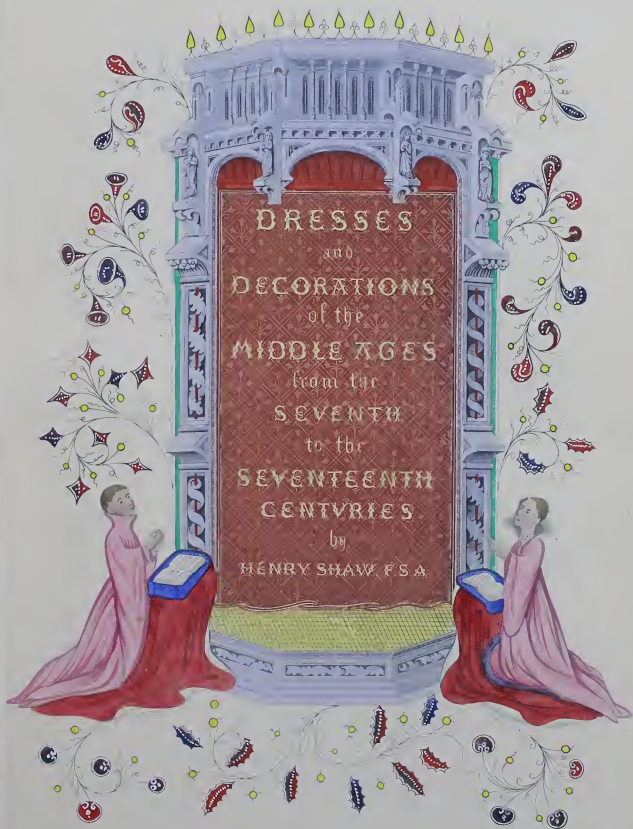 DRESSES
and
DECORATIONS
of the
MIDDLE AGES
from the
SEVENTH
to the
SEVENTEENTH
CENTVRIES
by
HENRY SHAW, F.S.A